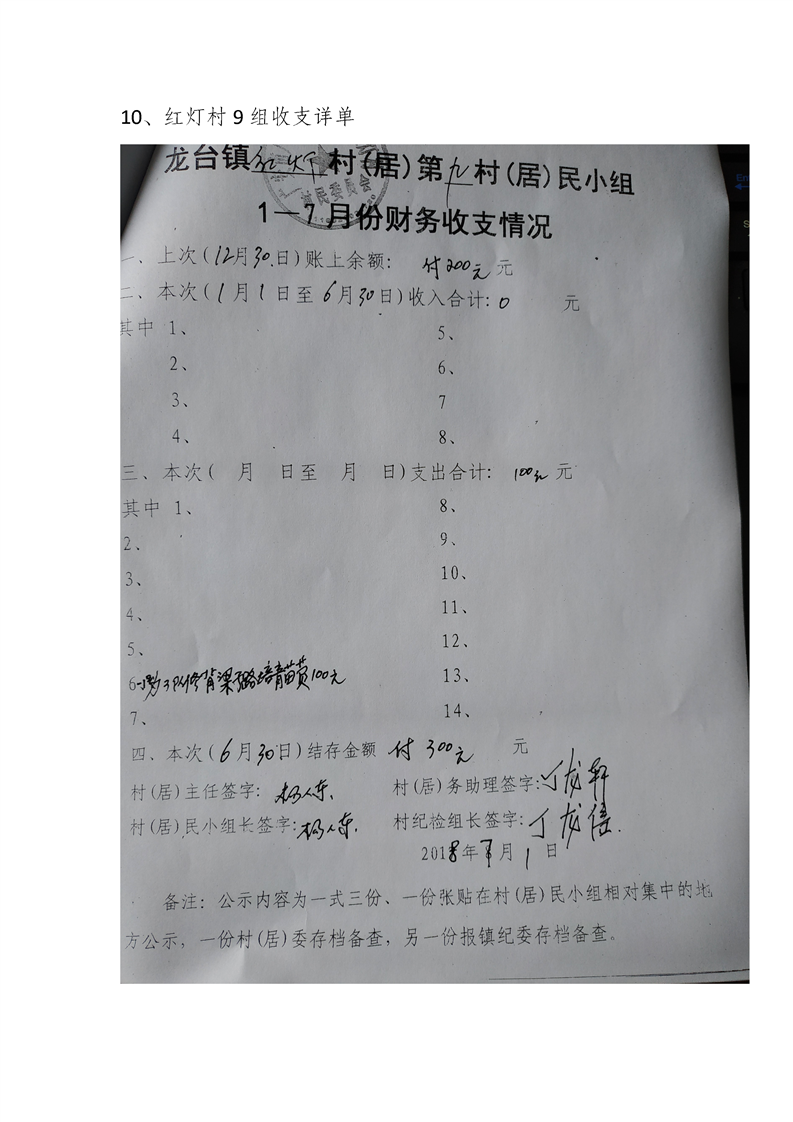 10、红灯村 9 组收支详单
龙台镇红灯村(居)第九村(居)民小组
1—7月份财务收支情况
一、上次(12月30日)账上余额: 付200元 元
二、本次(1月1日至6月30日)收入合计: 0 元
其中 1、 5、
2、 6、
3、 7
4、 8、
三、本次( 月 日至 月 日)支出合计: 100元 元
其中 1、 8、
2、 9、
3、 10、
4、 11、
5、 12、
6 修背梁 路培青苗费100元 13、
7、 14、
四、本次(6月30日)结存金额 付 300元 元
村(居)主任签字: 村(居)务助理签字: 龙轩
村(居)民小组长签字: 村纪检组长签字: 丁龙
2018年7月1日
备注: 公示内容为一式三份、一份张贴在村(居)民小组相对集中的地
方公示, 一份村(居)委存档备查, 另一份报镇纪委存档备查。